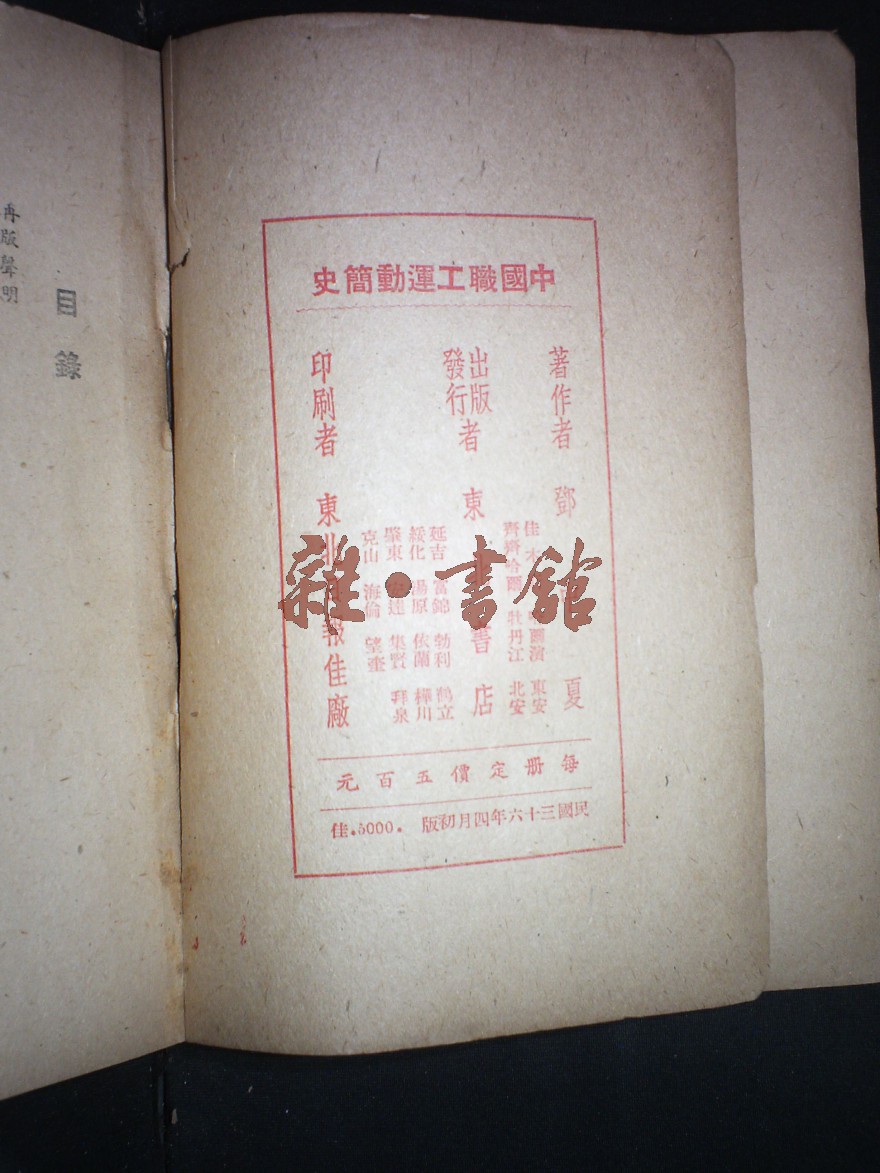 中國職工運動簡史
著作者 鄧 夏
出版
發行
者 東 書店
佳木 爾濱 東安
齊齊哈爾 牡丹江 北安
延吉 富錦 勃利 鶴立
綏化 湯原 依蘭 樺川
肇東 達 集賢 拜泉
克山 海倫 望奎
印刷者 東北 報佳廠
每册定價五百元
民國三十六年四月初版 .5000.佳
目錄
再版聲明
雜·書館